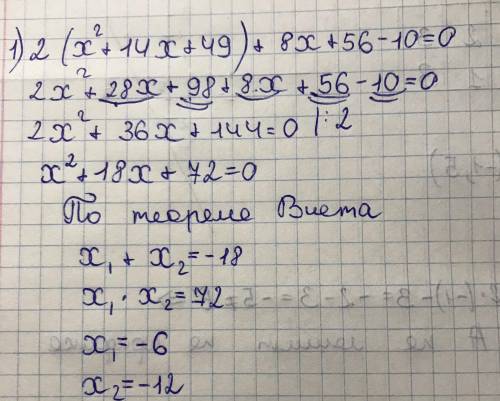 1) 2 (x² + 14x + 49) + 8x + 56 - 10 = 0
2x² + 28x + 98 + 8x + 56 - 10 = 0
2x² + 36x + 144 = 0 |: 2
x² + 18x + 72 = 0
По теореме Виета
x₁ + x₂ = -18
x₁ · x₂ = 72
x₁ = -6
x₂ = -12